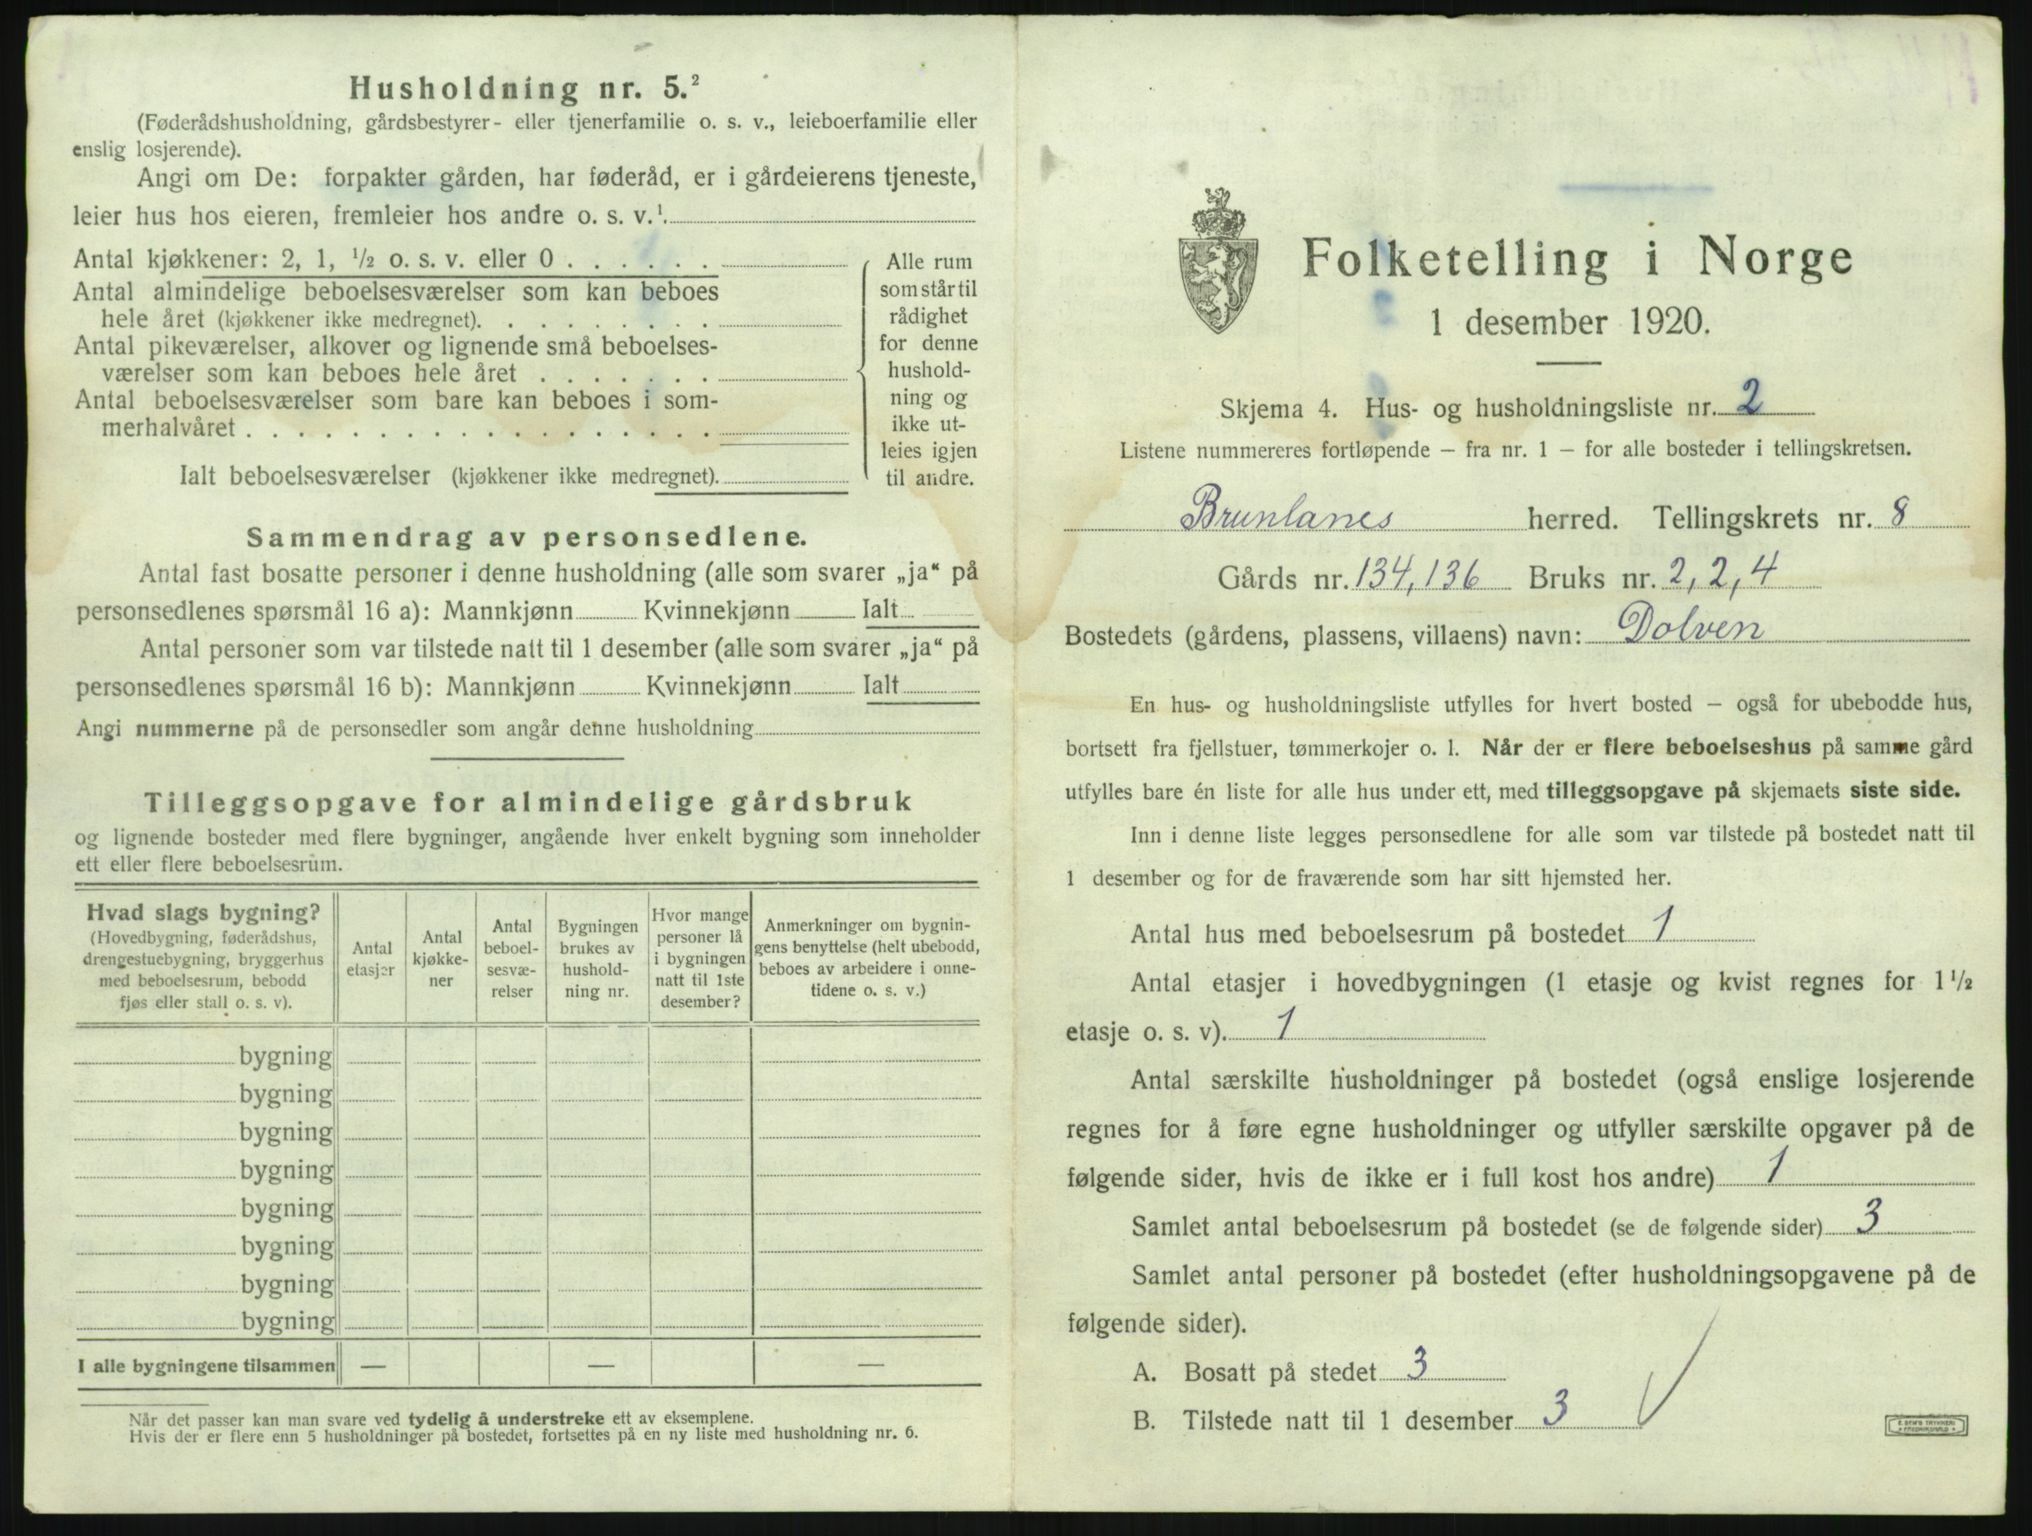 Husholdning nr. 5.²
(Føderådshusholdning, gårdsbestyrer- eller tjenerfamilie o. s. v., leieboerfamilie eller
enslig losjerende).
Angi om De: forpakter gården, har føderåd, er i gårdeierens tjeneste,
leier hus hos eieren, fremleier hos andre o. s. v.¹
Antal kjøkkener: 2, 1, ½ o. s. v. eller 0 . . . . . .
Antal almindelige beboelsesværelser som kan beboes
hele året (kjøkkener ikke medregnet). . . . . . . . .
Antal pikeværelser, alkover og lignende små beboelses-
værelser som kan beboes hele året . . . . . . .
Antal beboelsesværelser som bare kan beboes i som-
merhalvåret . . . . . . . . . . . . . . . . . .
Ialt beboelsesværelser (kjøkkener ikke medregnet).
Alle rum
som står til
rådighet
for denne
hushold-
ning og
ikke ut-
leies igjen
til andre.
Sammendrag av personsedlene.
Antal fast bosatte personer i denne husholdning (alle som svarer „ja“ på
personsedlenes spørsmål 16 a): Mannkjønn Kvinnekjønn Ialt
Antal personer som var tilstede natt til 1 desember (alle som svarer „ja“ på
personsedlenes spørsmål 16 b): Mannkjønn Kvinnekjønn Ialt
Angi nummerne på de personsedler som angår denne husholdning
Tilleggsopgave for almindelige gårdsbruk
og lignende bosteder med flere bygninger, angående hver enkelt bygning som inneholder
ett eller flere beboelsesrum.
Hvad slags bygning?
(Hovedbygning, føderådshus,
drengestuebygning, bryggerhus
med beboelsesrum, bebodd
fjøs eller stall o. s. v).
Antal
etasjer
Antal
kjøkke-
ner
Antal
beboel-
sesvæ-
relser
Bygningen
brukes av
hushold-
ning nr.
Hvor mange
personer lå
i bygningen
natt til 1ste
desember?
Anmerkninger om bygnin-
gens benyttelse (helt ubebodd,
beboes av arbeidere i onne-
tidene o. s. v.)
bygning
bygning
bygning
bygning
bygning
bygning
bygning
bygning
I alle bygningene tilsammen — — —
Når det passer kan man svare ved tydelig å understreke ett av eksemplene.
Hvis der er flere enn 5 husholdninger på bostedet, fortsettes på en ny liste med husholdning nr. 6.
Folketelling i Norge
1 desember 1920.
Skjema 4. Hus- og husholdningsliste nr. 2
Listene nummereres fortløpende — fra nr. 1 — for alle bosteder i tellingskretsen.
Brunlanes herred. Tellingskrets nr. 8
Gårds nr. 134, 136 Bruks nr. 2, 2, 4
Bostedets (gårdens, plassens, villaens) navn: Dolven
En hus- og husholdningsliste utfylles for hvert bosted — også for ubebodde hus,
bortsett fra fjellstuer, tømmerkojer o. l. Når der er flere beboelseshus på samme gård
utfylles bare én liste for alle hus under ett, med tilleggsopgave på skjemaets siste side.
Inn i denne liste legges personsedlene for alle som var tilstede på bostedet natt til
1 desember og for de fraværende som har sitt hjemsted her.
Antal hus med beboelsesrum på bostedet 1
Antal etasjer i hovedbygningen (1 etasje og kvist regnes for 1 ½
etasje o. s. v). 1
Antal særskilte husholdninger på bostedet (også enslige losjerende
regnes for å føre egne husholdninger og utfyller særskilte opgaver på de
følgende sider, hvis de ikke er i full kost hos andre) 1
Samlet antal beboelsesrum på bostedet (se de følgende sider) 3
Samlet antal personer på bostedet (efter husholdningsopgavene på de
følgende sider).
A. Bosatt på stedet 3
B. Tilstede natt til 1 desember 3